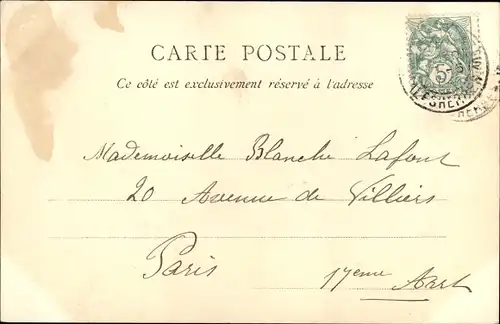 CARTE POSTALE
Ce côté est exclusivement réservé à l'adresse
5
Mademoiselle Blanche Lafont
20 Avenue de Villiers
Paris 17eme Arrt